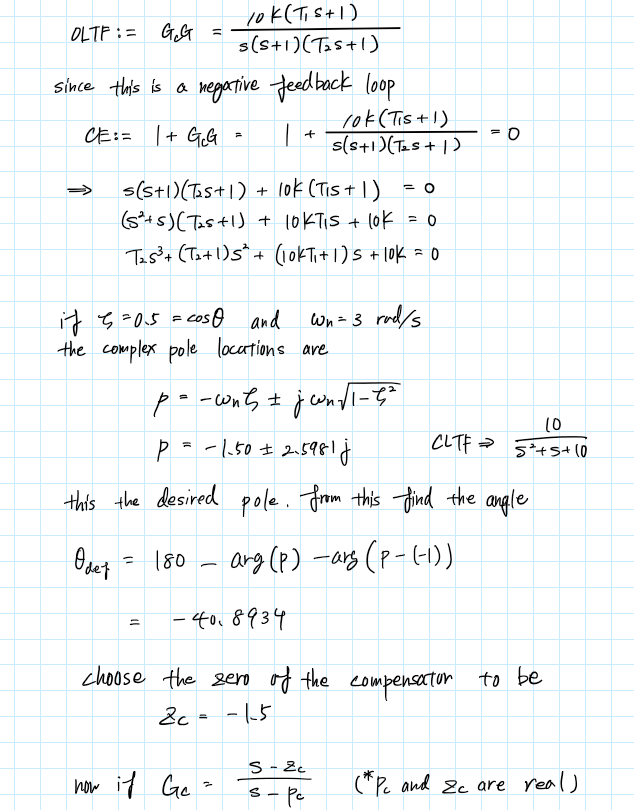 OLTF := GcG = 10K(T₁s+1) / s(s+1)(T₂s+1)
since this is a negative feedback loop
CE := 1 + GcG = 1 + 10K(T₁s+1) / s(s+1)(T₂s+1) = 0
⇒ s(s+1)(T₂s+1) + 10K(T₁s+1) = 0
(s²+s)(T₂s+1) + 10KT₁s + 10K = 0
T₂s³ + (T₂+1)s² + (10KT₁+1)s + 10K = 0
if ζ = 0.5 = cosθ and ωn = 3 rad/s
the complex pole locations are
p = -ωnζ ± jωn√(1-ζ²)
p = -1.50 ± 2.5981j CLTF ⇒ 10 / s²+s+10
this the desired pole. from this find the angle
θdef = 180 - arg(p) - arg(p-(-1))
= -40.8934
choose the zero of the compensator to be
Zc = -1.5
now if Gc = s - zc / s - pc (*Pc and Zc are real)